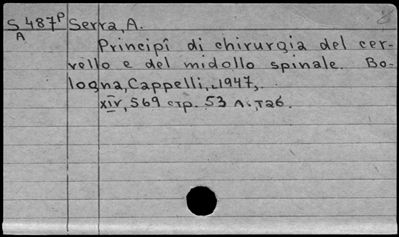 S 487ᵖ Serra, A.
A Principî di chirurgia del cer-
vello e del midollo spinale. Bo-
logna, Cappelli, 1947,.
XIV, 569 стр. 53 л., таб.
8